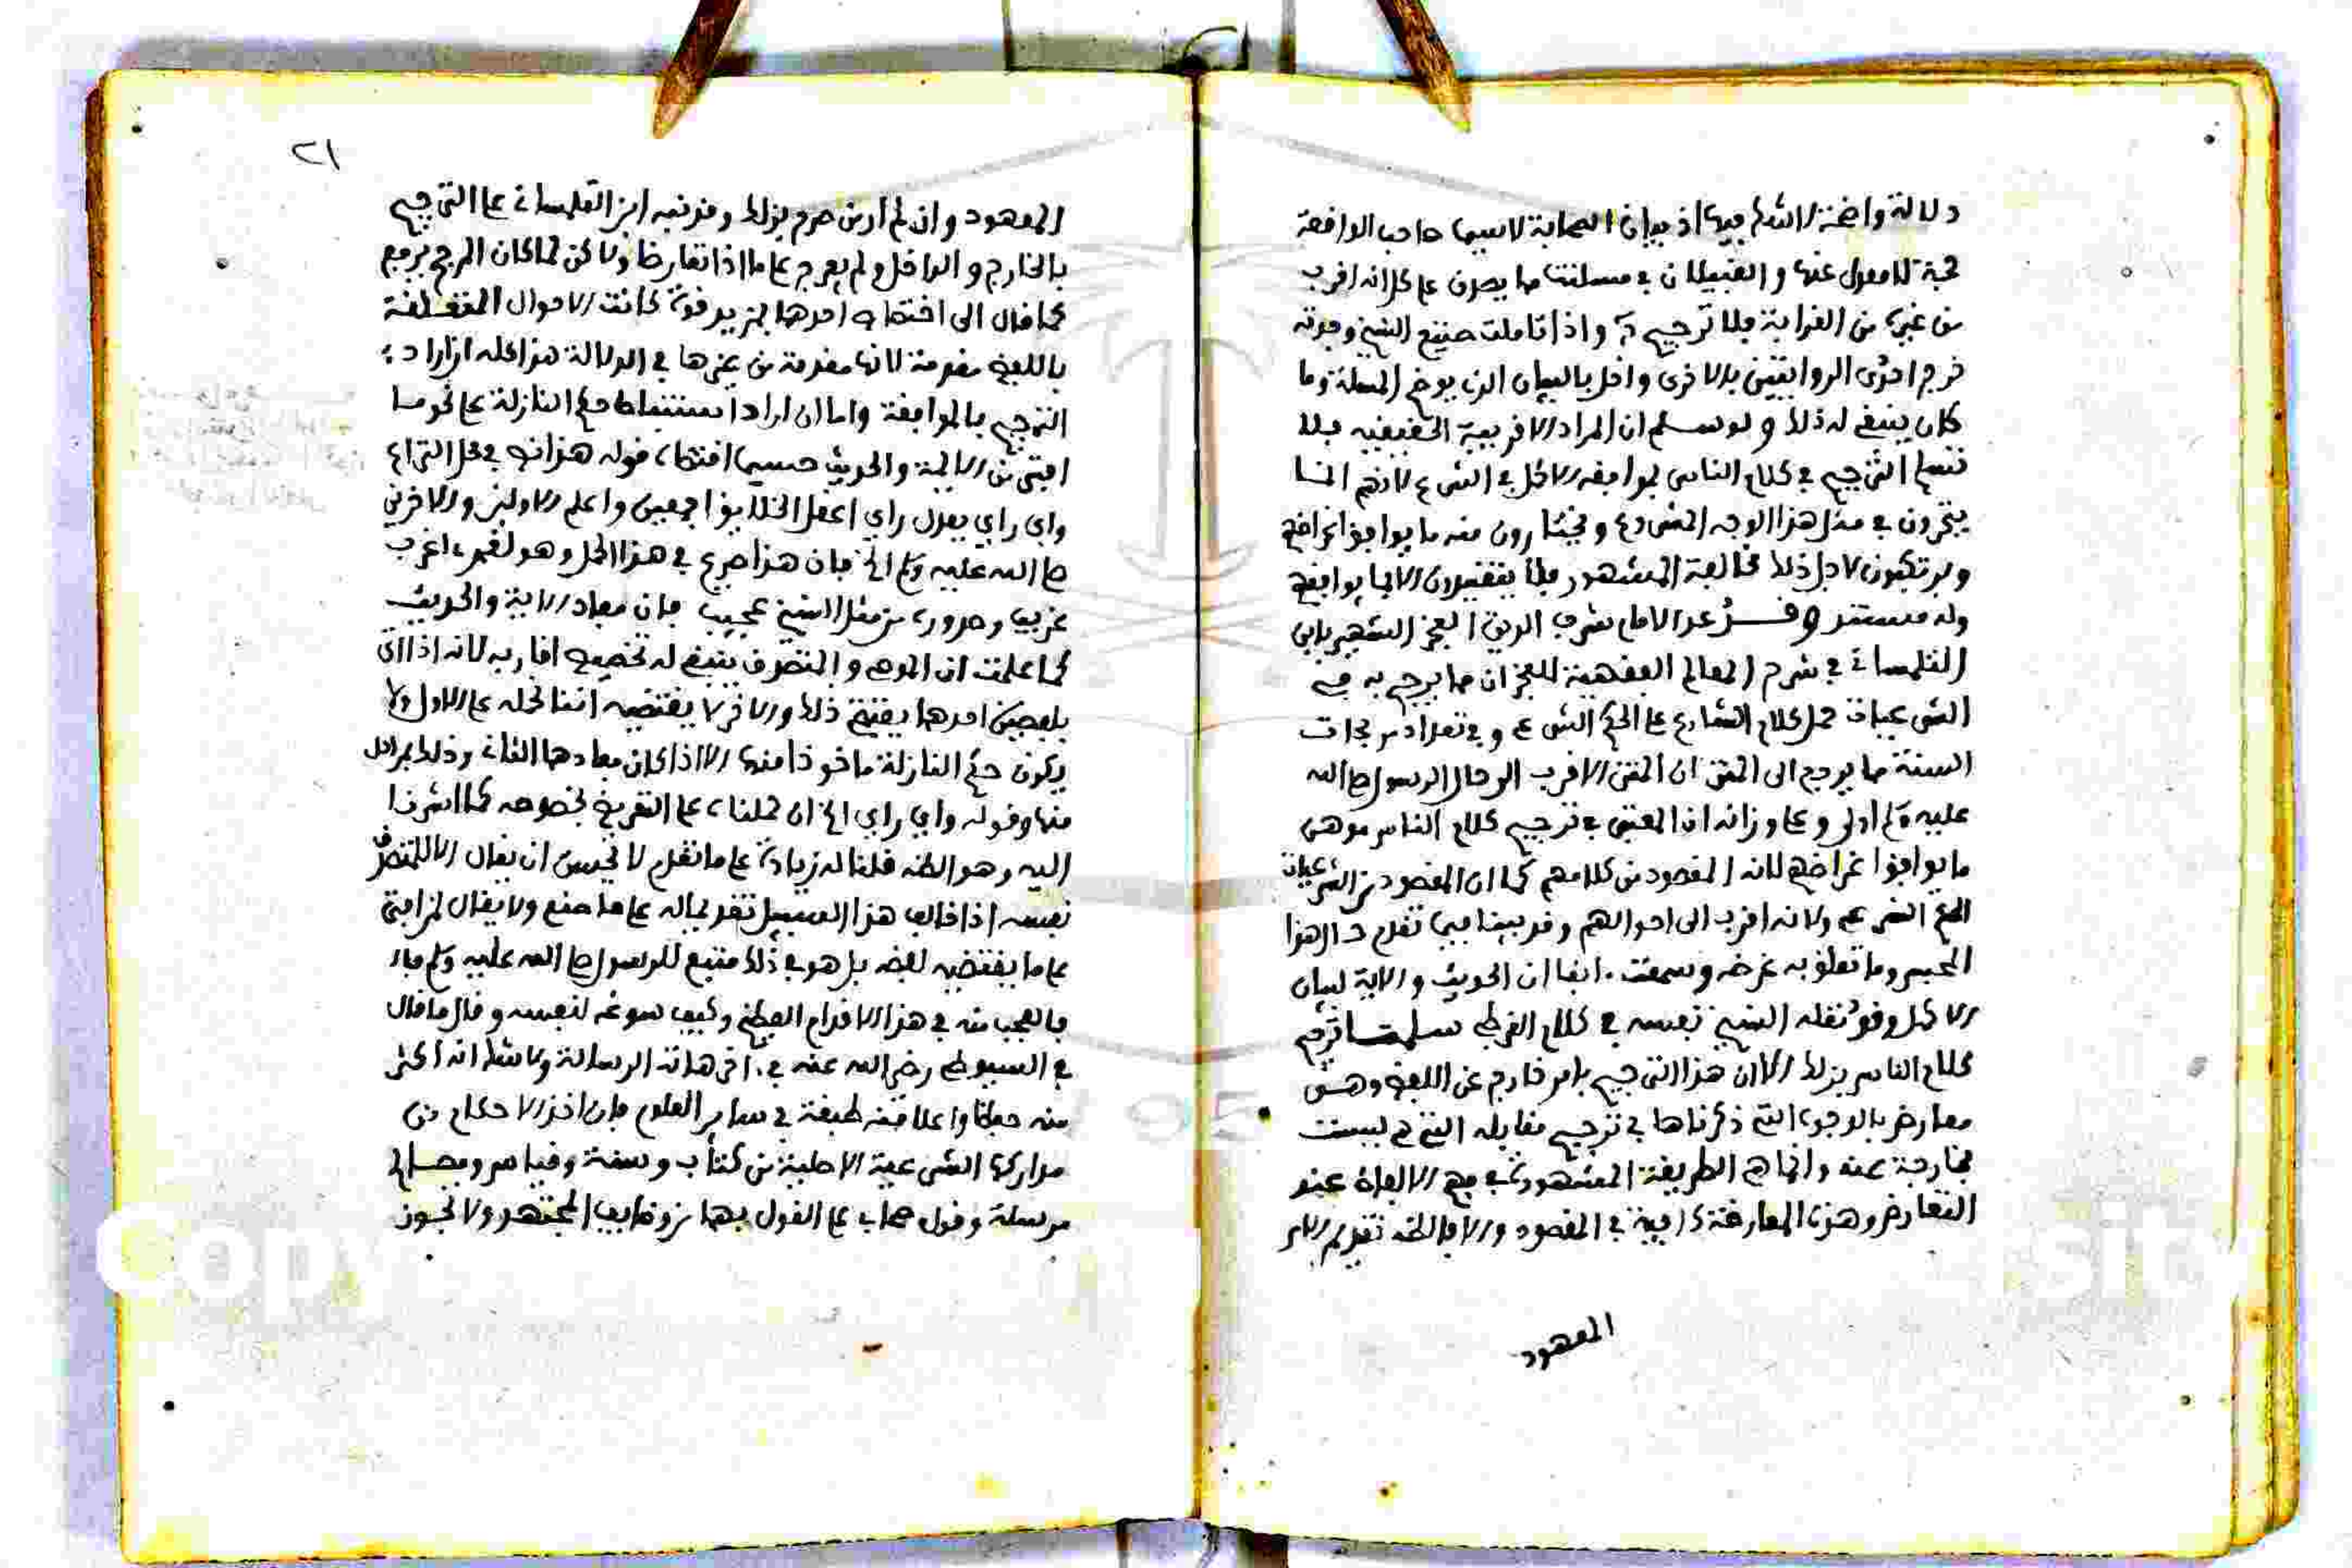 دلالة واضحة لا شك فيها اذ بيان الصحابة لاسيما صاحب الواقعة
حجة لا معدل عنها و القبيلان في مسئلتنا مما يصدق على كل انه اقرب
من غيره من القرابة فلا ترجيح به واذا تاملت صنيع الشيخ وجدته
خرج احدى الروايتين بالاخرى واخل بالبيان الذي يوضح المسئلة وما
كان ينبغي له ذلك ولو سلم ان المراد الاقربية الحقيقية فلا
نسلم الترجيح في كلام الناس بموافقة الاكل في الشرع لانهم انما
يتحرون في مثل هذا الوجه المشروع ويختارون منه ما يوافق اغراضهم
ويرتكبون لاجل ذلك مخالفة المشهور فلا يتقيدون الا بما يوافقهم
وله مستند وقد عد الامام شرف الدين الفخر الشهير بابن
التلمساني في شرح المعالم الفقهية للفخر ان مما يرجح به في
الشرعيات حمل كلام الشارع على الحكم الشرعي وفي تعداد مرجحات
السنة مما يرجع الى المتن ان المتن الاقرب الى حال الرسول صلى الله
عليه وسلم اولى وعلى وزانه ان المعتبر في ترجيح كلام الناس هو
ما يوافق اغراضهم لانه المقصود من كلامهم كما ان المقصود من الشرعيات
الحكم الشرعي ولانه اقرب الى احوالهم وقد بينا فيما تقدم حال هذا
المحبس وما تعلق به غرضه وسمعت انفا ان الحديث والاية لبيان
الاكمل وقد نقله الشيخ نفسه في كلام القرطبي سلمنا ترجيح
كلام الناس بذلك الا ان هذا الترجيح بامر خارج عن اللفظ وهو
معارض بالوجوه التي ذكرناها في ترجيح مقابله التي ليست
بخارجة عنه وانما هي الطريقة المشهورة في فهم الالفاظ عند
التعارض وهذه المعارضة كافية في المقصود والا فالظاهر تقديم الامر
المعهود
٢١
المعهود وان لم ار من صرح بذلك وقد نبه ابن التلمساني على الترجيح
بالخارج و الداخل ولم يعرج على ما اذا تعارضا ولاكن لما كان المرجح يرجع
كما قال الى اختصاص احدهما بمزيد قوة كانت الاحوال المتعلقة
باللفظ مقدمة لانها مقدمة من غيرها في الدلالة هذا كله ان اراد
الترجيح بالموافقة واما ان اراد استنباط حكم النازلة على نحو ما
افتى من الاية والحديث حسبما اقتضاه قوله هذا نص في محل النزاع
واي راي يعدل راي اعقل الخلايق اجمعين واعلم الاولين والاخرين
صلى الله عليه وسلم الخ فان هذا صريح في هذا المحل وهو لعمري اغرب
غريب وصدوره من مثل الشيخ عجيب فان مفاد الاية والحديث
كما علمت ان الموصي و المتصرف ينبغي له تخصيص اقاربه لانه اذا اتى
بلفظين احدهما يقتضي ذلك والاخر لا يقتضيه اننا نحمله على الاول ولا
يكون حكم النازلة ماخوذا منها الا اذا كان مفادهما الثاني وذلك بمراحل
منها وقوله واي راي الخ ان حملناه على التفريع بخصوصه كما اشرنا
اليه وهو الظاهر قلنا له زيادة على ما تقدم لا يحسن ان يقال الا للمتصرف
نفسه اذا خالف هذا السبيل تقديما له على ما صنع ولا يقال لمن افتى
على ما يقتضيه لفظه بل هو في ذلك متبع للرسول صلى الله عليه وسلم
فالعجب منه في هذا الاقدام العظيم وكيف سوغه لنفسه وقال ما قال
في السيوطي رضي الله عنه في اخر هاته الرسالة ولا شك انه اكثر
منه حفظا واعلا منه طبقة في ساير العلوم فان اخذ الاحكام من
مداركها الشرعية الاصلية من كتاب وسنة وقياس ومصالح
مرسلة وقول صحابي على القول بهما من وظايف المجتهد ولا يجوز